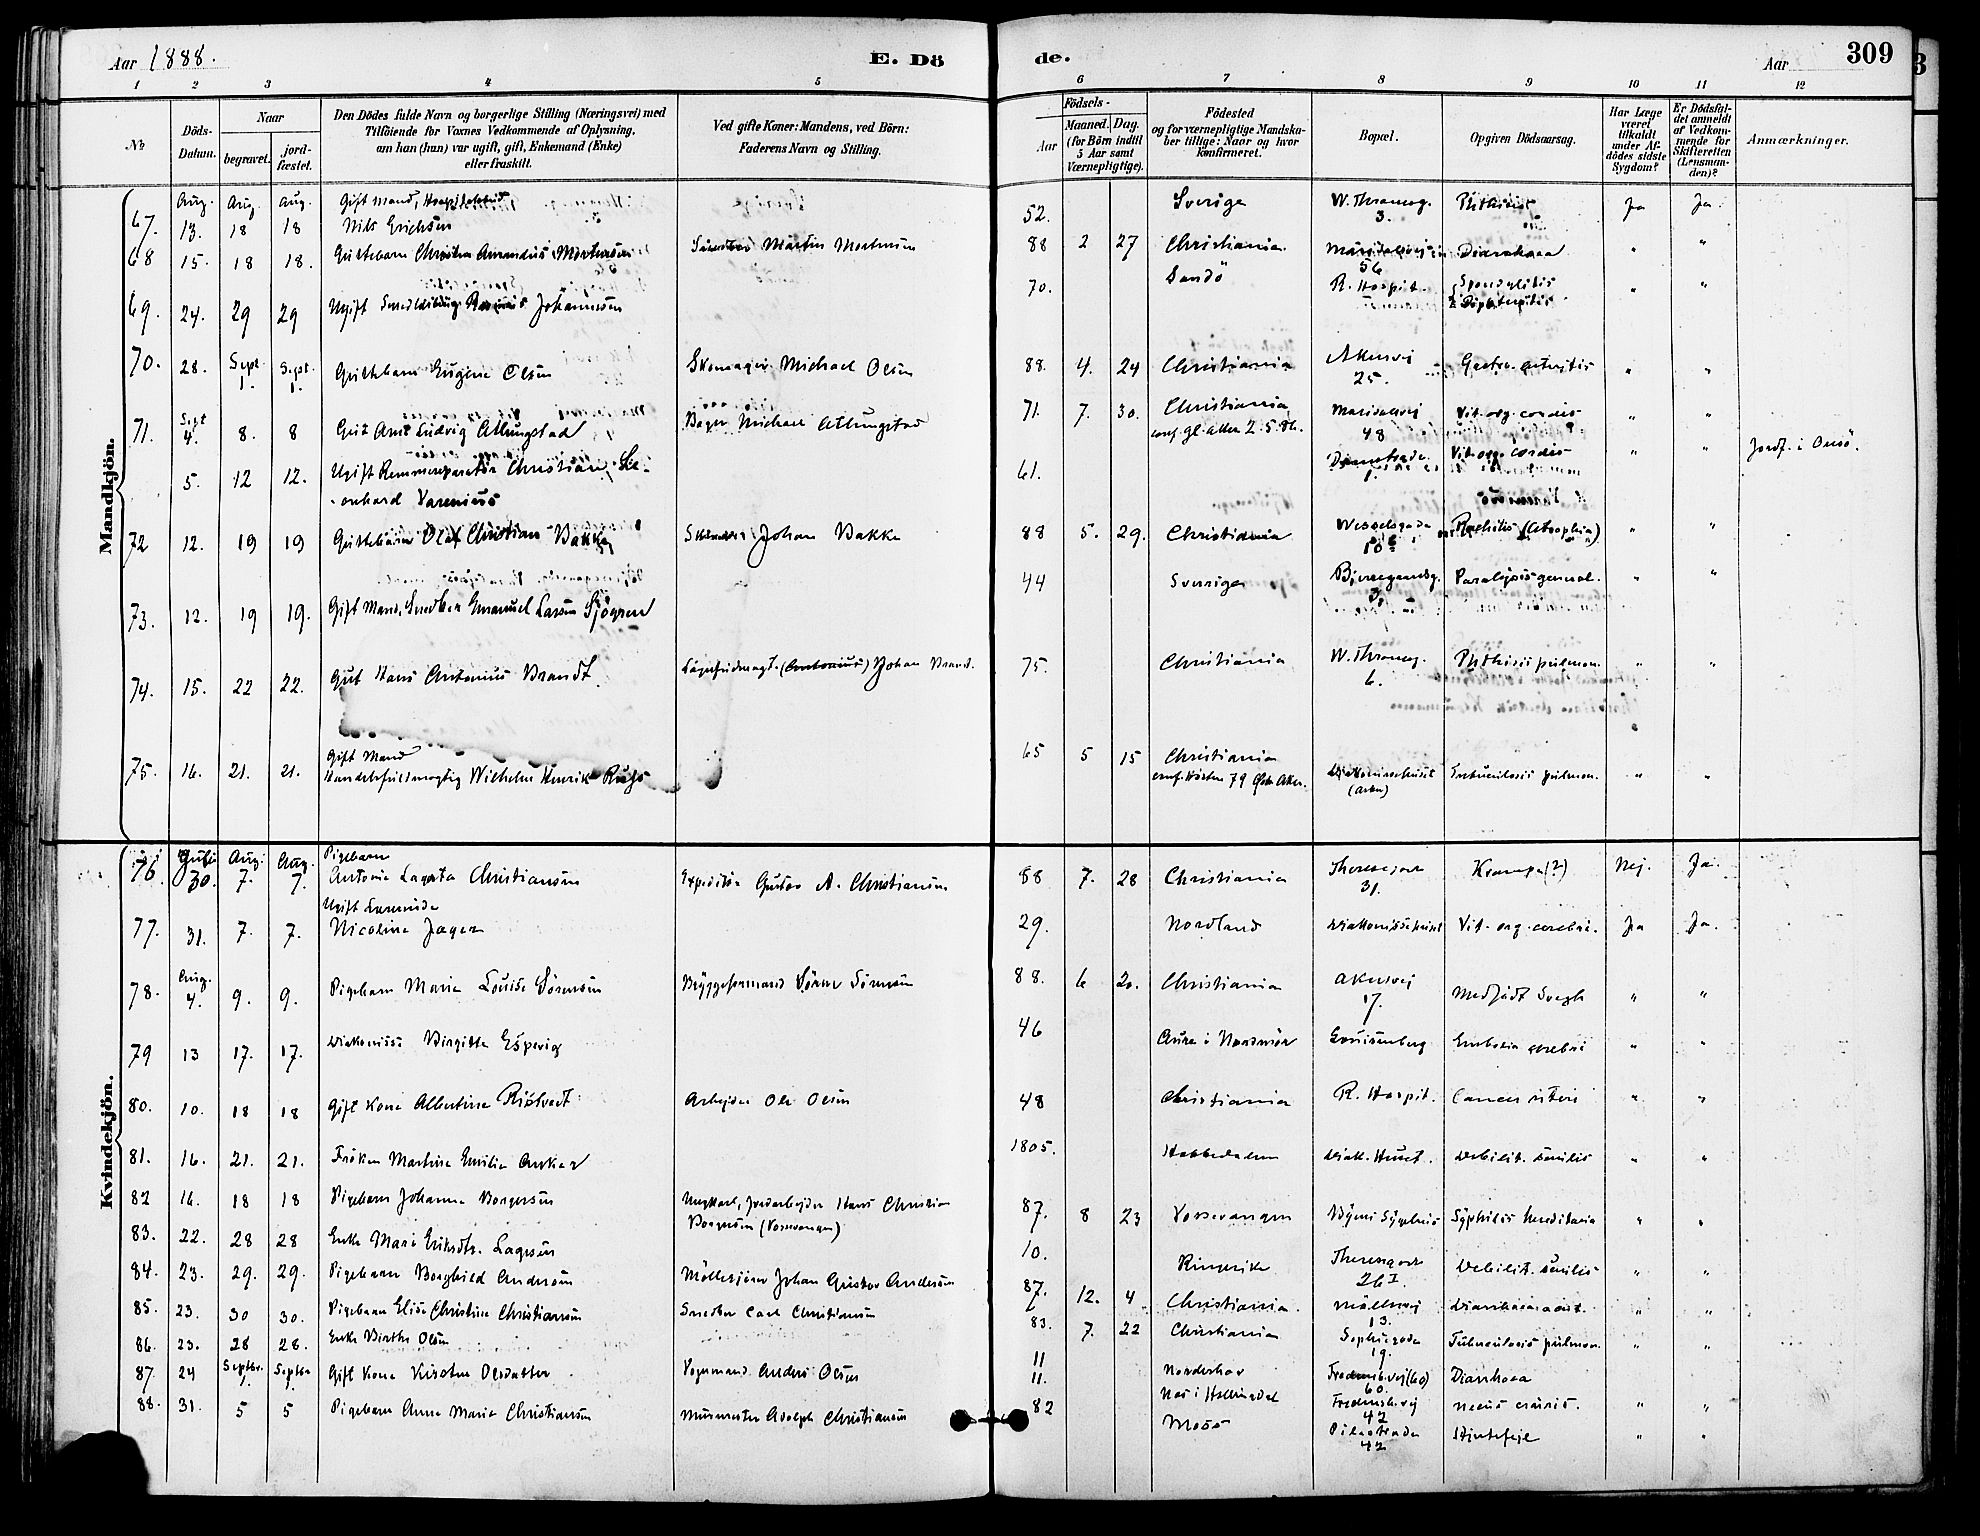 Aar 1888.
E. Dö
de.
Aar
309
1 2 3 4 5 6 7 8 9 10 11 12
№
Döds-Datum.
Naar
begravet.
jord-fæstet.
Den Dödes fulde Navn og borgerlige Stilling (Næringsvei) med
Tilföiende for Voxnes Vedkommende af Oplysning,
om han (hun) var ugift, gift, Enkemand (Enke)
eller fraskilt.
Ved gifte Koner: Mandens, ved Börn:
Faderens Navn og Stilling.
Födsels-
Aar
Maaned. Dag.
(for Börn indtil
5 Aar samt
Værnepligtige).
Födested
og for værnepligtige Mandska-
ber tillige: Naar og hvor
konfirmeret.
Bopæl.
Opgiven Dödsaarsag.
Har Læge
været
tilkaldt
under Af-
dödes sidste
Sygdom?
Er Dödsfal-
det anmeldt
af Vedkom-
mende for
Skifteretten
(Lensman-
den)?
Anmærkninger.
Mandkjön.
Aug. Aug. Aug. Gift Mand,
67. 13. 18 18 Nils Erichsen 52. Sverige W. Thranesg. 3. Ja Ja
68 15. 18 18. Guttebarn Christen Amandus Mortensen Martin Mortensen 88 2 27 Christiania 56 Diarrhoea " "
69. 24. 29 29 Ugift Johannesen 70. Sandö R. Hospit. Spondylitis " "
70. 28. Sept. 1. Sept. 1. Guttebarn Eugene Olsen Skomager Michael Olsen 88. 4. 24 Christiania Akersvej 25. Gastro-enteritis " "
71. Sept 4. 8. 8 Gut Ludvig Attungstad Bager Michael Attungstad 71. 7. 30. Christiania Maridalsvej 48 Vit. org. cordis " "
conf. Gl. Aker
5. 12 12. Ugift Christian Le-
onhard Varenius 61. Vit. org. cordis " " Jordf. i Onsö.
72 12. 19 19 Guttebarn Olaf Christian Bakke Johan Bakke 88 5. 29. Christiania Wesselsgade Rachitis (Atrophia) " "
73. 12. 19 19. Gift Mand, Emanuel Larsen Sjögren 44 Sverige Paralysis general. " "
74. 15. 22 22. Gut Hans Antonius Brandt (Antonius) Johan Brandt. 75. Christiania W. Thranesg. 6. Phthisis pulmon. " "
75. 16. 21. 21. Gift Mand
Handelsfuldmægtig Wilhelm Henrik 65 5 15 Christiania Diakonissehuset Tuberculosis pulmon. " "
Kvindekjön.
76. Juli 30. Aug. 7. Aug. 7. Pigebarn
Antonie Lagerta Christiansen Expeditör Gustav A. Christiansen 88 7. 28 Christiania Theresegade 31. Krampe (?) Nej. Ja.
77. 31. 7. 7. Ugift
Nicoline Jager 29. Nordland Diakonissehuset Vit. org. cerebri. Ja Ja.
78. Aug. 4. 9. 9. Pigebarn Marie Louise Sörensen Bryggeformand Sören Sörensen 88. 6 20. Christiania Akersvej 17. Medfödt Svagh. " "
79 13 17. 17. Diakonisse Birgitte Espevig 46 Aure i Nordmör Embolia cerebri " "
80. 10. 18 18 Gift Kone Albertine Arbejder Ole Olsen 48 Christiania R. Hospit. Cancer uteri " "
81. 16. 21. 21. Fröken Martine Emilie Anker 1805. Diak. Huset. Debilit. senilis " "
82 16. 18 18 Pigebarn Johanne Borgersen Ungkarl, Jordarbejder Hans Christian
Borgersen (Vossevangen) 87. 8 23 Vossevangen Syphilis hereditaria " "
83. 22. 28 28 Enke Mari Eriksdtr. Lagesen 10. Ringerike Theresegade 26 I. Debilit. senilis " "
84. 23. 29. 29. Pigebarn Borghild Andersen Möllesvend Johan Gustav Andersen 87. 12. 4 Christiania. Möllevej 13. Diarrhoea acut. " "
85. 23. 30 30. Pigebarn Elise Christine Christiansen Smed Carl Christiansen 83. 7. 22 Christiania Sophiegade 19. Tuberculosis pulmon. " "
86. 23. 28 28. Enke Birthe Olsen 11 Norderhov Diarrhoea
87. 24 Septbr. 1. Septbr 1. Gift Kone Kirstine Olsdatter Vognmand Anders Olsen 11. Nes i Hallingdal 42 " "
88. 31. 5 5 Pigebarn Anna Marie Christiansen Murmester Adolph Christiansen 82 Moss Pilestrade 42 Hjertefejl " "